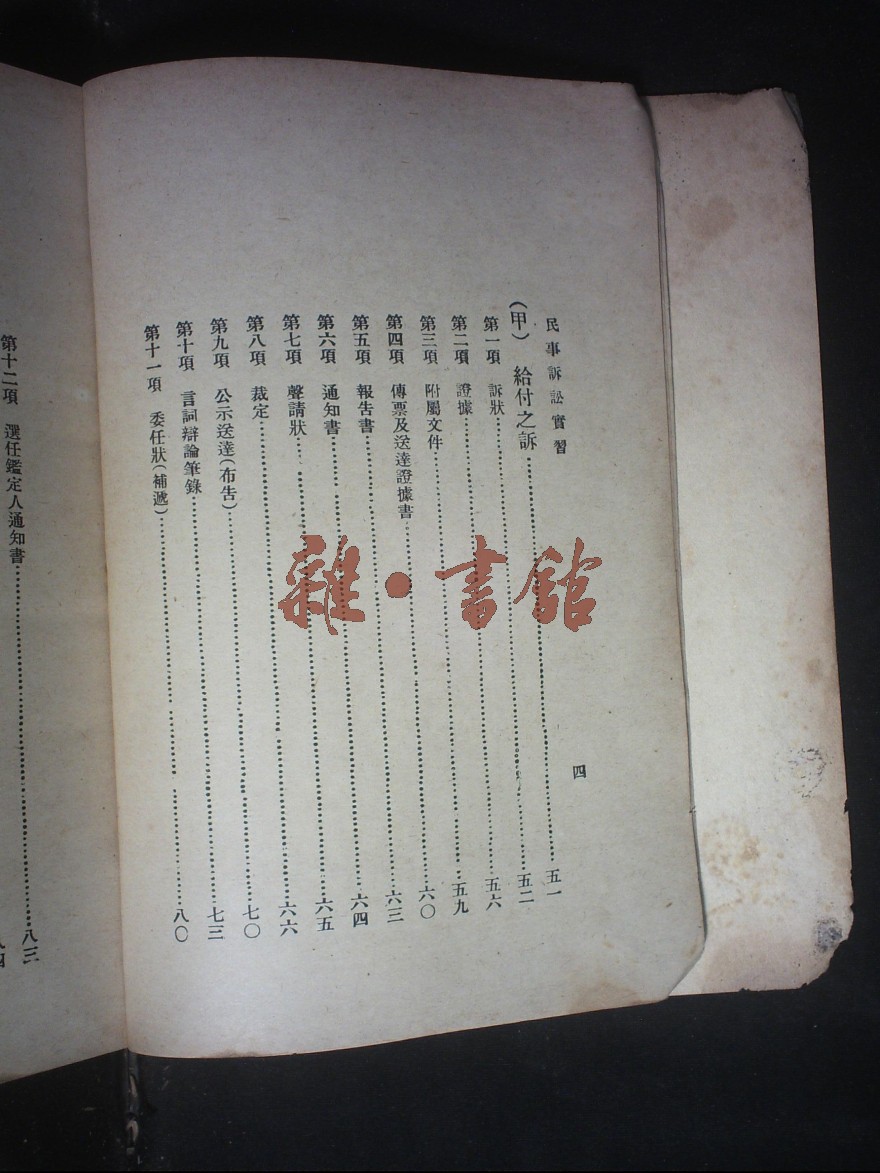 民事訴訟實習
四
（甲） 給付之訴……五一
第一項 訴狀……五二
第二項 證據……五六
第三項 附屬文件……五九
第四項 傳票及送達證據書……六〇
第五項 報告書……六三
第六項 通知書……六四
第七項 聲請狀……六五
第八項 裁定……六六
第九項 公示送達（布告）……七〇
第十項 言詞辯論筆錄……七三
第十一項 委任狀（補遞）……八〇
第十二項 選任鑑定人通知書……八三
雜・書館